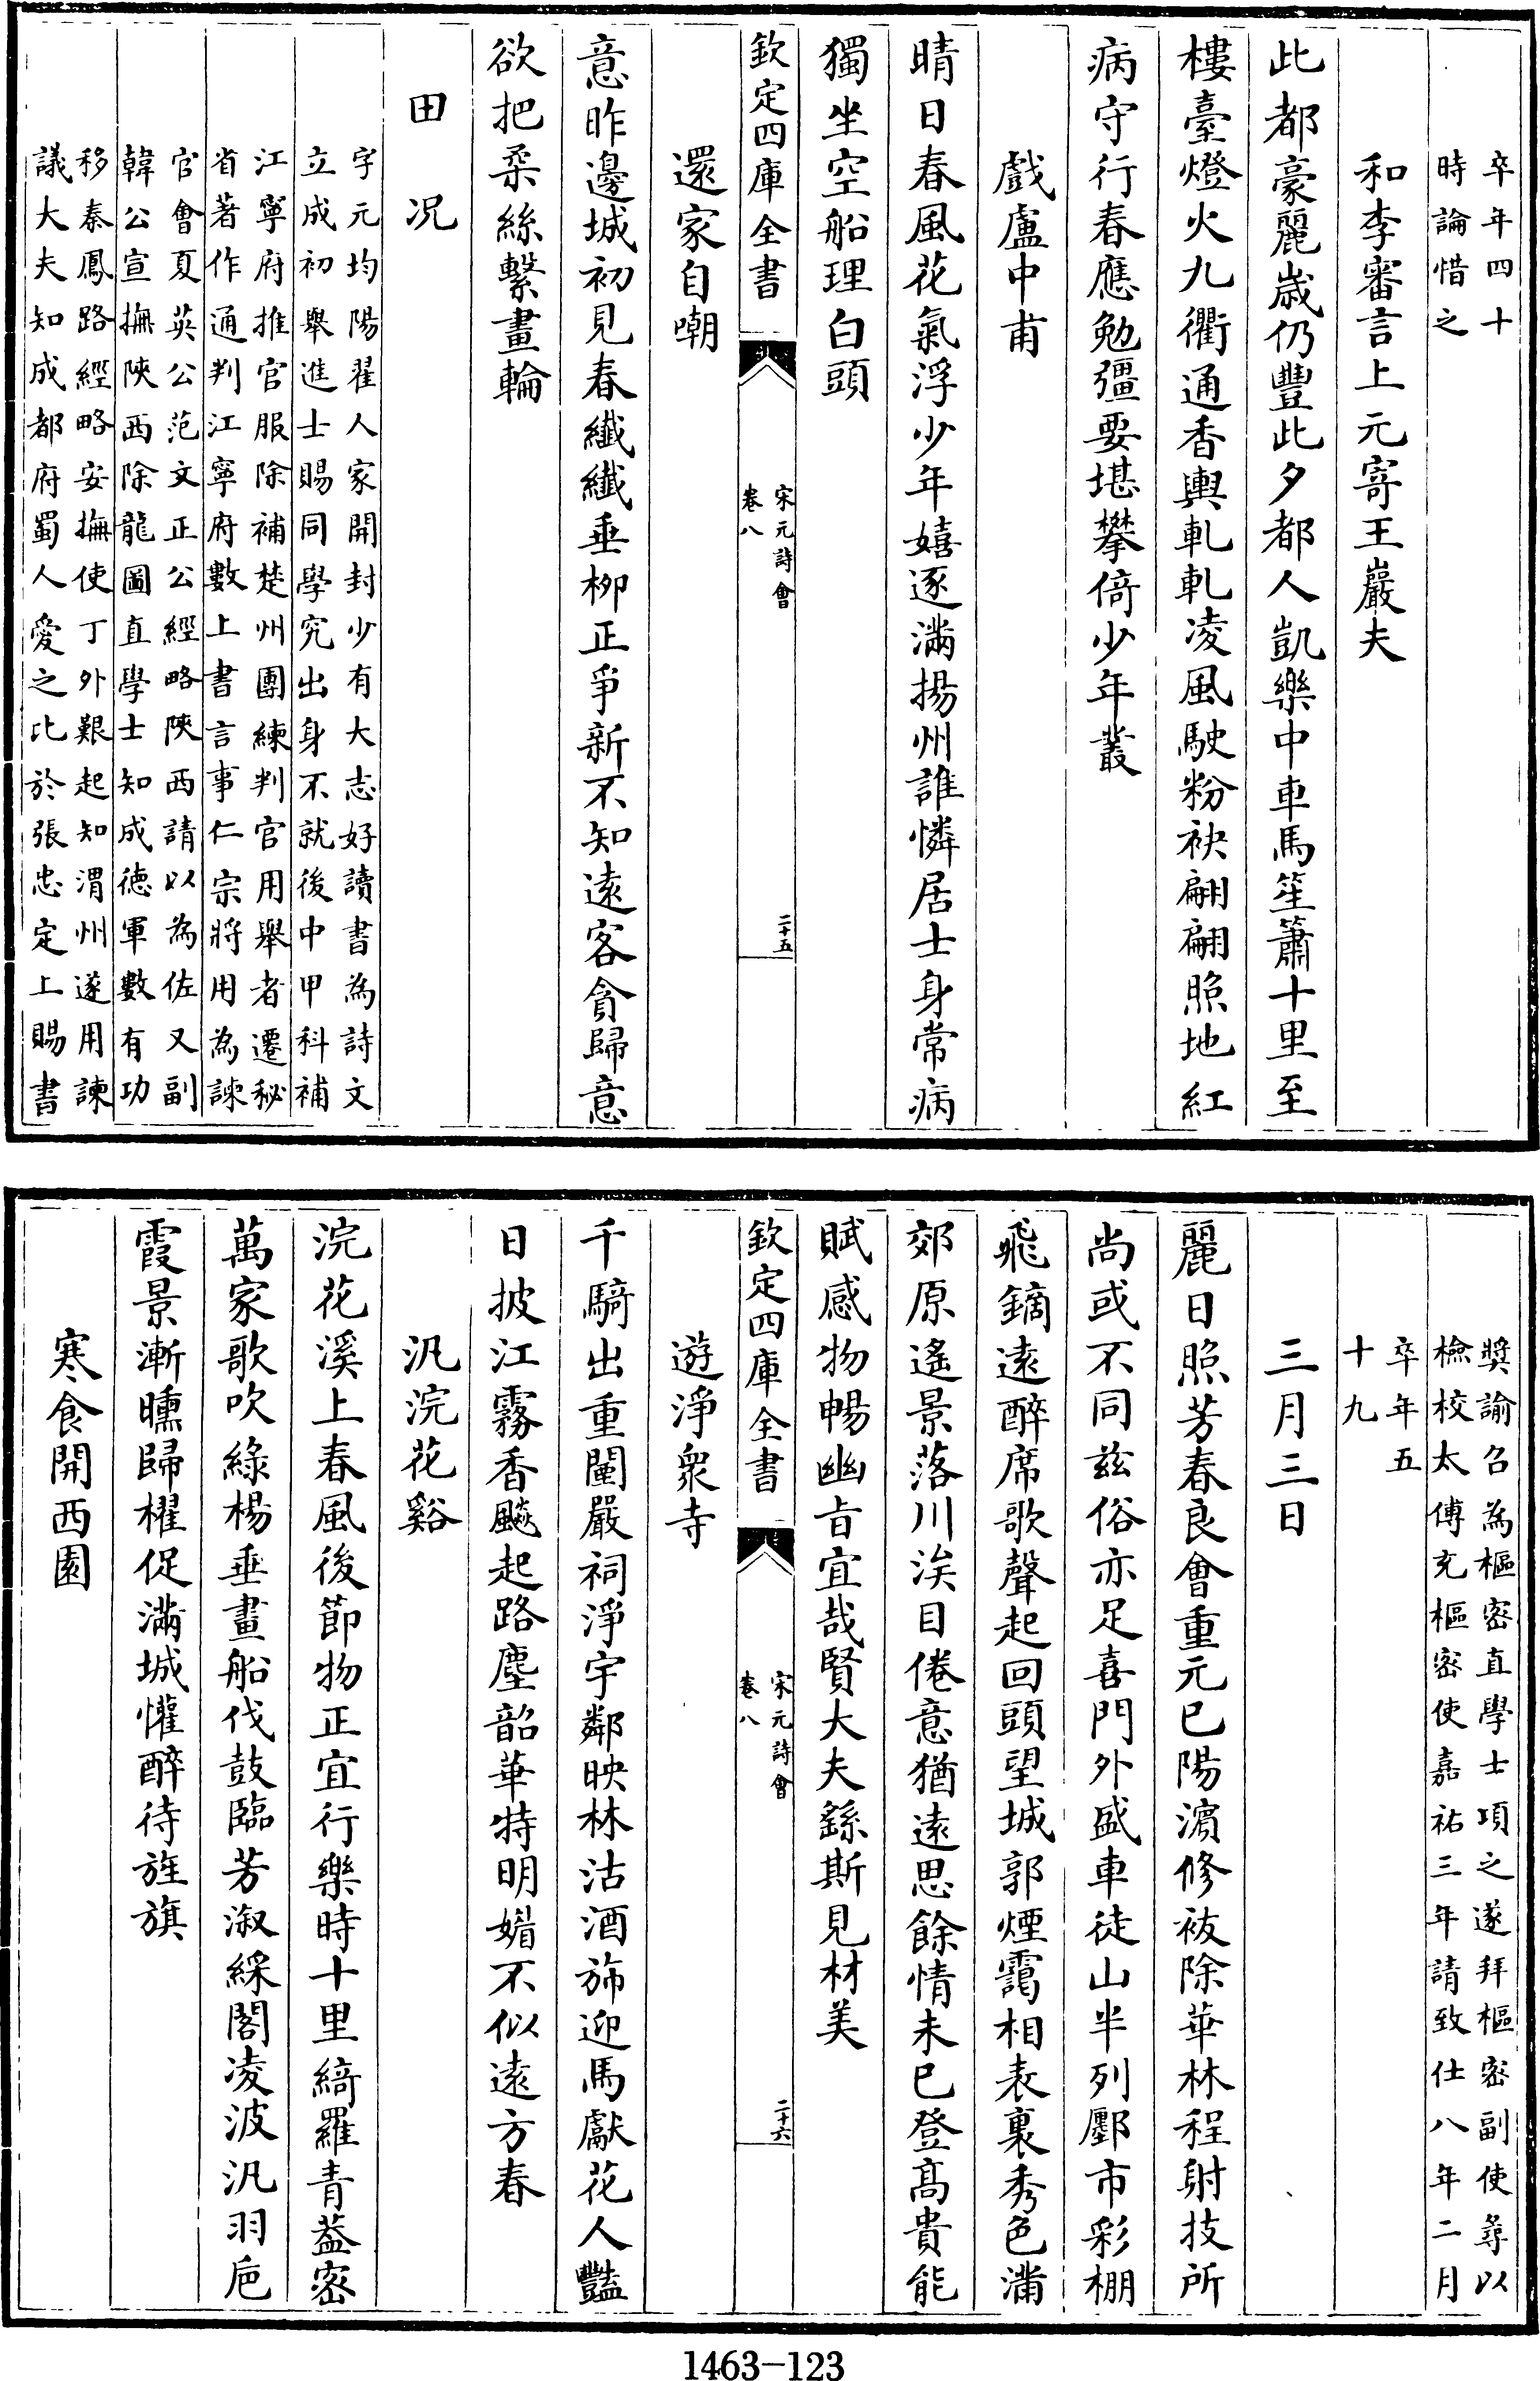 卒年四十
時論惜之
和李審言上元寄王巖夫
此都豪麗歲仍豐此夕都人凱樂中車馬笙簫十里至
樓臺燈火九衢通香輿軋軋凌風駛粉袂翩翩照地紅
病守行春應勉彊要堪攀倚少年叢
戲盧中甫
晴日春風花氣浮少年嬉逐滿揚州誰憐居士身常病
獨坐空船理白頭
欽定四庫全書
宋元詩會
卷八
二十五
還家自嘲
意昨邊城初見春纖纖垂栁正爭新不知遠客貪歸意
欲把柔絲繫畫輪
田况
字元均陽翟人家開封少有大志好讀書為詩文
立成初舉進士賜同學究出身不就後中甲科補
江寧府推官服除補楚州團練判官用舉者遷秘
省著作通判江寧府數上書言事仁宗將用為諫
官會夏英公范文正公經略陝西請以為佐又副
韓公宣撫陝西除龍圖直學士知成德軍數有功
移秦鳳路經略安撫使丁外艱起知渭州遂用諫
議大夫知成都府蜀人愛之比於張忠定上賜書
奬諭召為樞密直學士項之遂拜樞密副使尋以
檢校太傅充樞密使嘉祐三年請致仕八年二月
卒年五
十九
三月三日
麗日照芳春良會重元巳陽濵修袚除華林程射技所
尚或不同兹俗亦足喜門外盛車徒山半列鄽市彩棚
飛鏑遠醉席歌聲起回頭望城郭煙靄相表裏秀色滿
郊原遙景落川涘目倦意猶遠思餘情未已登髙貴能
賦感物暢幽旨宜哉賢大夫繇斯見材美
欽定四庫全書
宋元詩會
卷八
二十六
遊淨衆寺
千騎出重闉嚴祠淨宇鄰映林沽酒斾迎馬獻花人豔
日披江霧香飈起路塵韶華特明媚不似遠方春
汎浣花谿
浣花溪上春風後節物正宜行樂時十里綺羅青葢密
萬家歌吹綠楊垂畫船伐鼓臨芳溆綵閣凌波汎羽巵
霞景漸曛歸櫂促滿城懽醉待旌旗
寒食開西園
1463-123